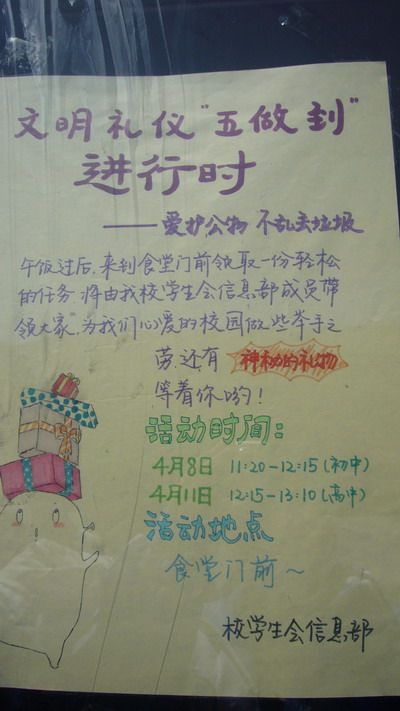 文明礼仪"五做到"
进行时
——爱护公物 不乱丢垃圾
午饭过后,来到食堂门前领取一份轻松
的任务,将由我校学生会信息部成员带
领大家,为我们心爱的校园做些举手之
劳,还有 神秘的礼物
等着你哟!
活动时间:
4月8日 11:20-12:15(初中)
4月11日 12:15-13:10(高中)
活动地点
食堂门前~
校学生会信息部